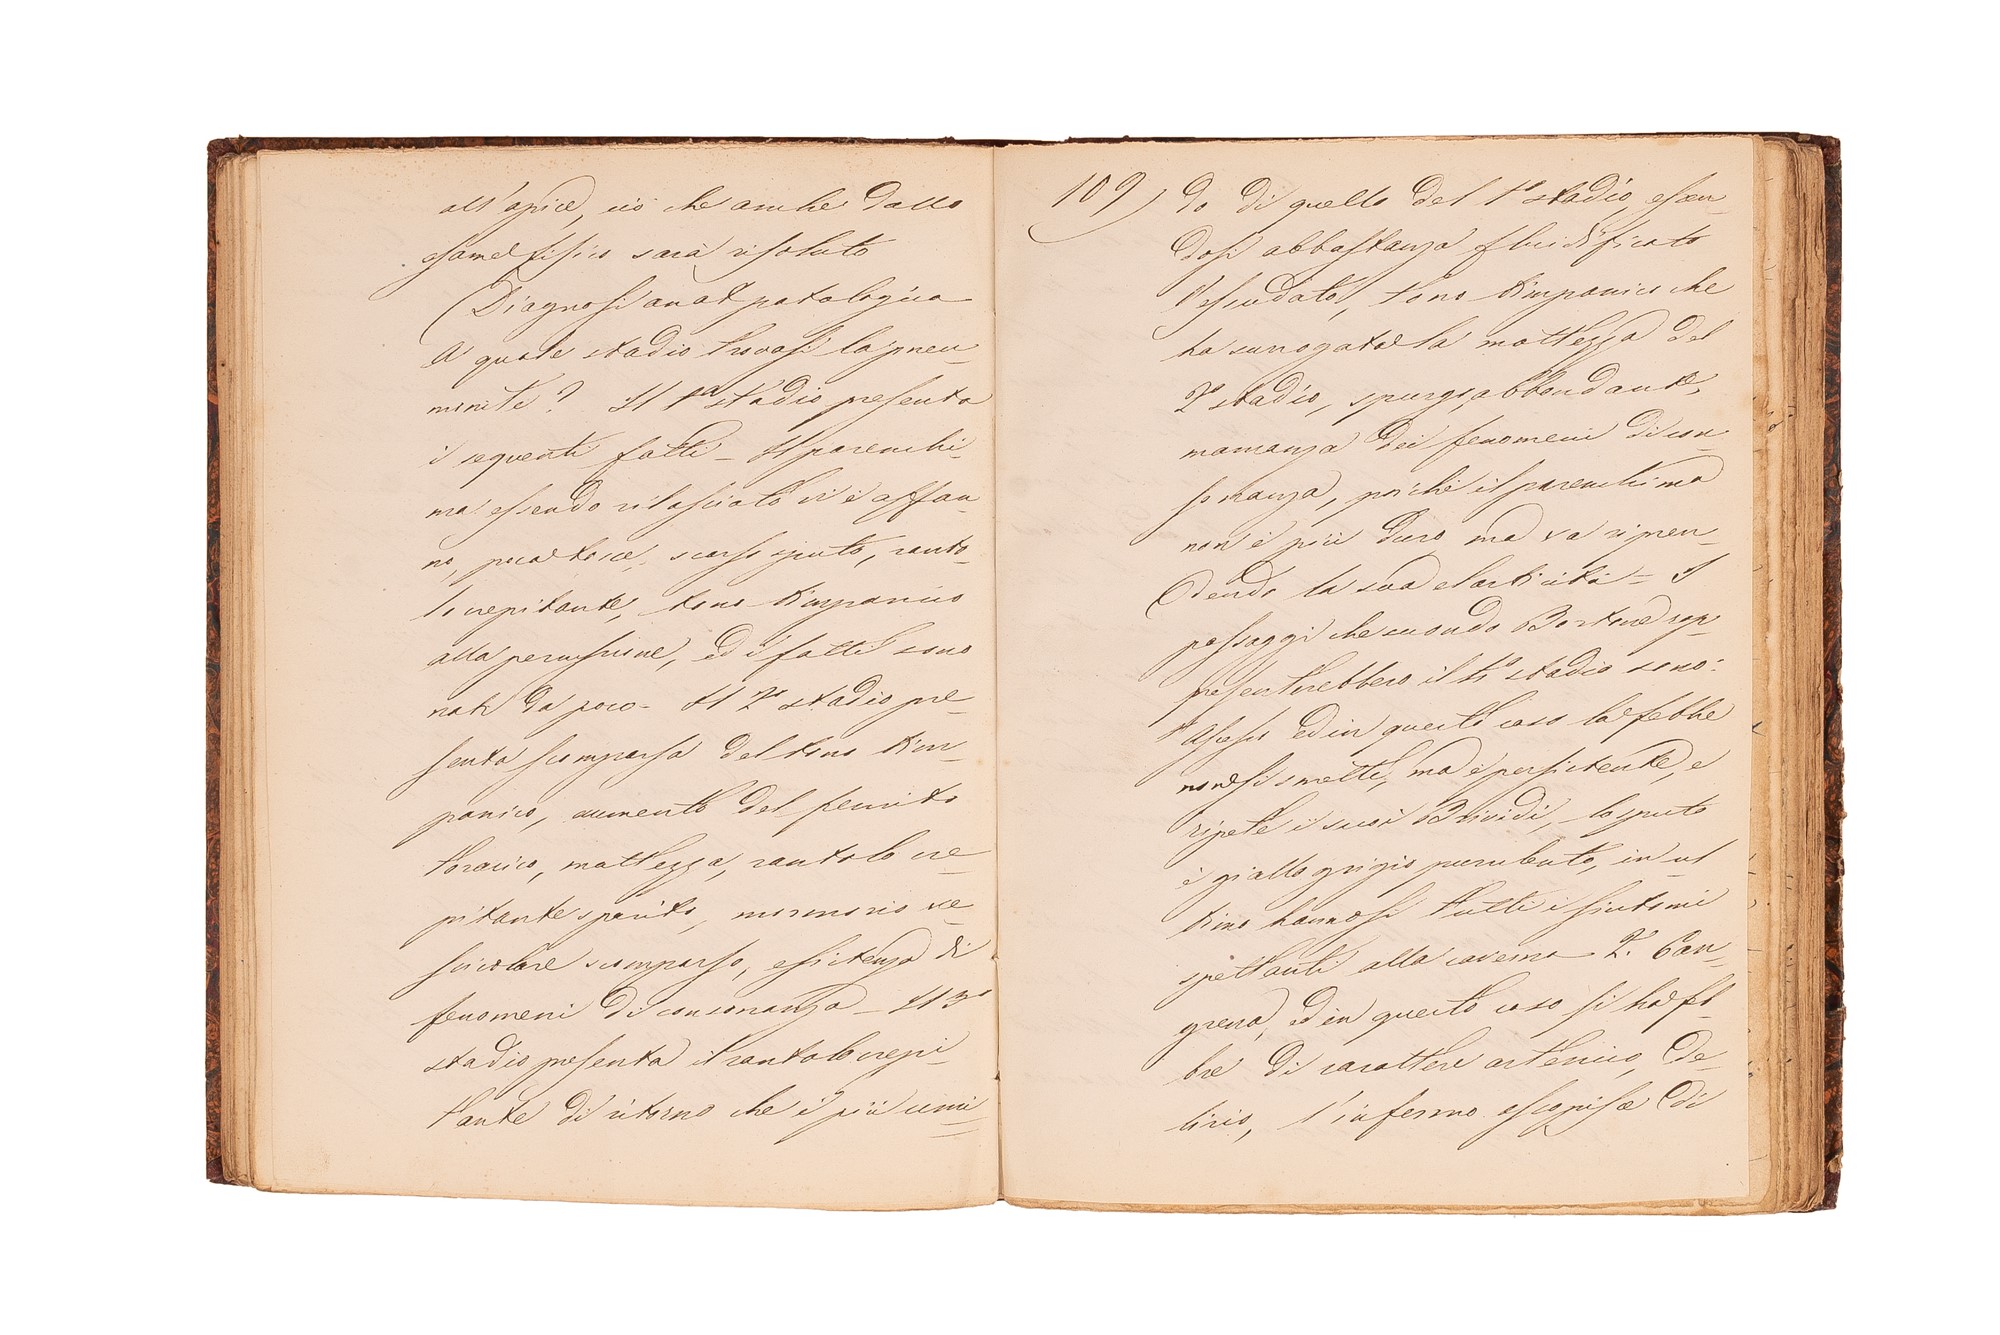 all'apice, ciò che anche dallo
esame fisico sarà risoluto
(Diagnosi anat patologica
A quale stadio trovasi la pneu_
monite? Il 1º stadio presenta
i seguenti fatti _ Il parenchi_
ma essendo rilasciato vi è affan_
no, poca tosse, scarso sputo, ranto_
lo crepitante, tono timpanico
alla percussione, ed i fatti sono
nati da poco _ Il 2º stadio pre_
senta scomparsa del tono tim_
panico, aumento del fremito
toracico, mattezza, rantolo cre_
pitante sparito, mormorio ve_
scicolare scomparso, esistenza di
fenomeni di consonanza _ Il 3º
stadio presenta il rantolo crepi_
tante di ritorno che è più umi_
109) do di quello del 1º stadio, essen_
dosi abbastanza fluidificato
l'essudato, tono timpanico che
ha surrogato la mattezza del
2º stadio, spurgo abbondante,
mancanza dei fenomeni di con_
sonanza, poichè il parenchima
non è più duro ma va ripren_
dendo la sua elasticità _ I
passaggi che secondo Bortone rap_
presenterebbero il 4º stadio sono:
l'Ascesso ed in questo caso la febbre
non si smette, ma è persistente, e
ripete i suoi Brividi, lo sputo
è giallo grigio purulento, in ul
timo hannosi tutti i sintomi
spettanti alla caverna _ 2. Can_
grena, ed in questo caso si ha feb_
bre di carattere astenico, De_
lirio, l'infermo di